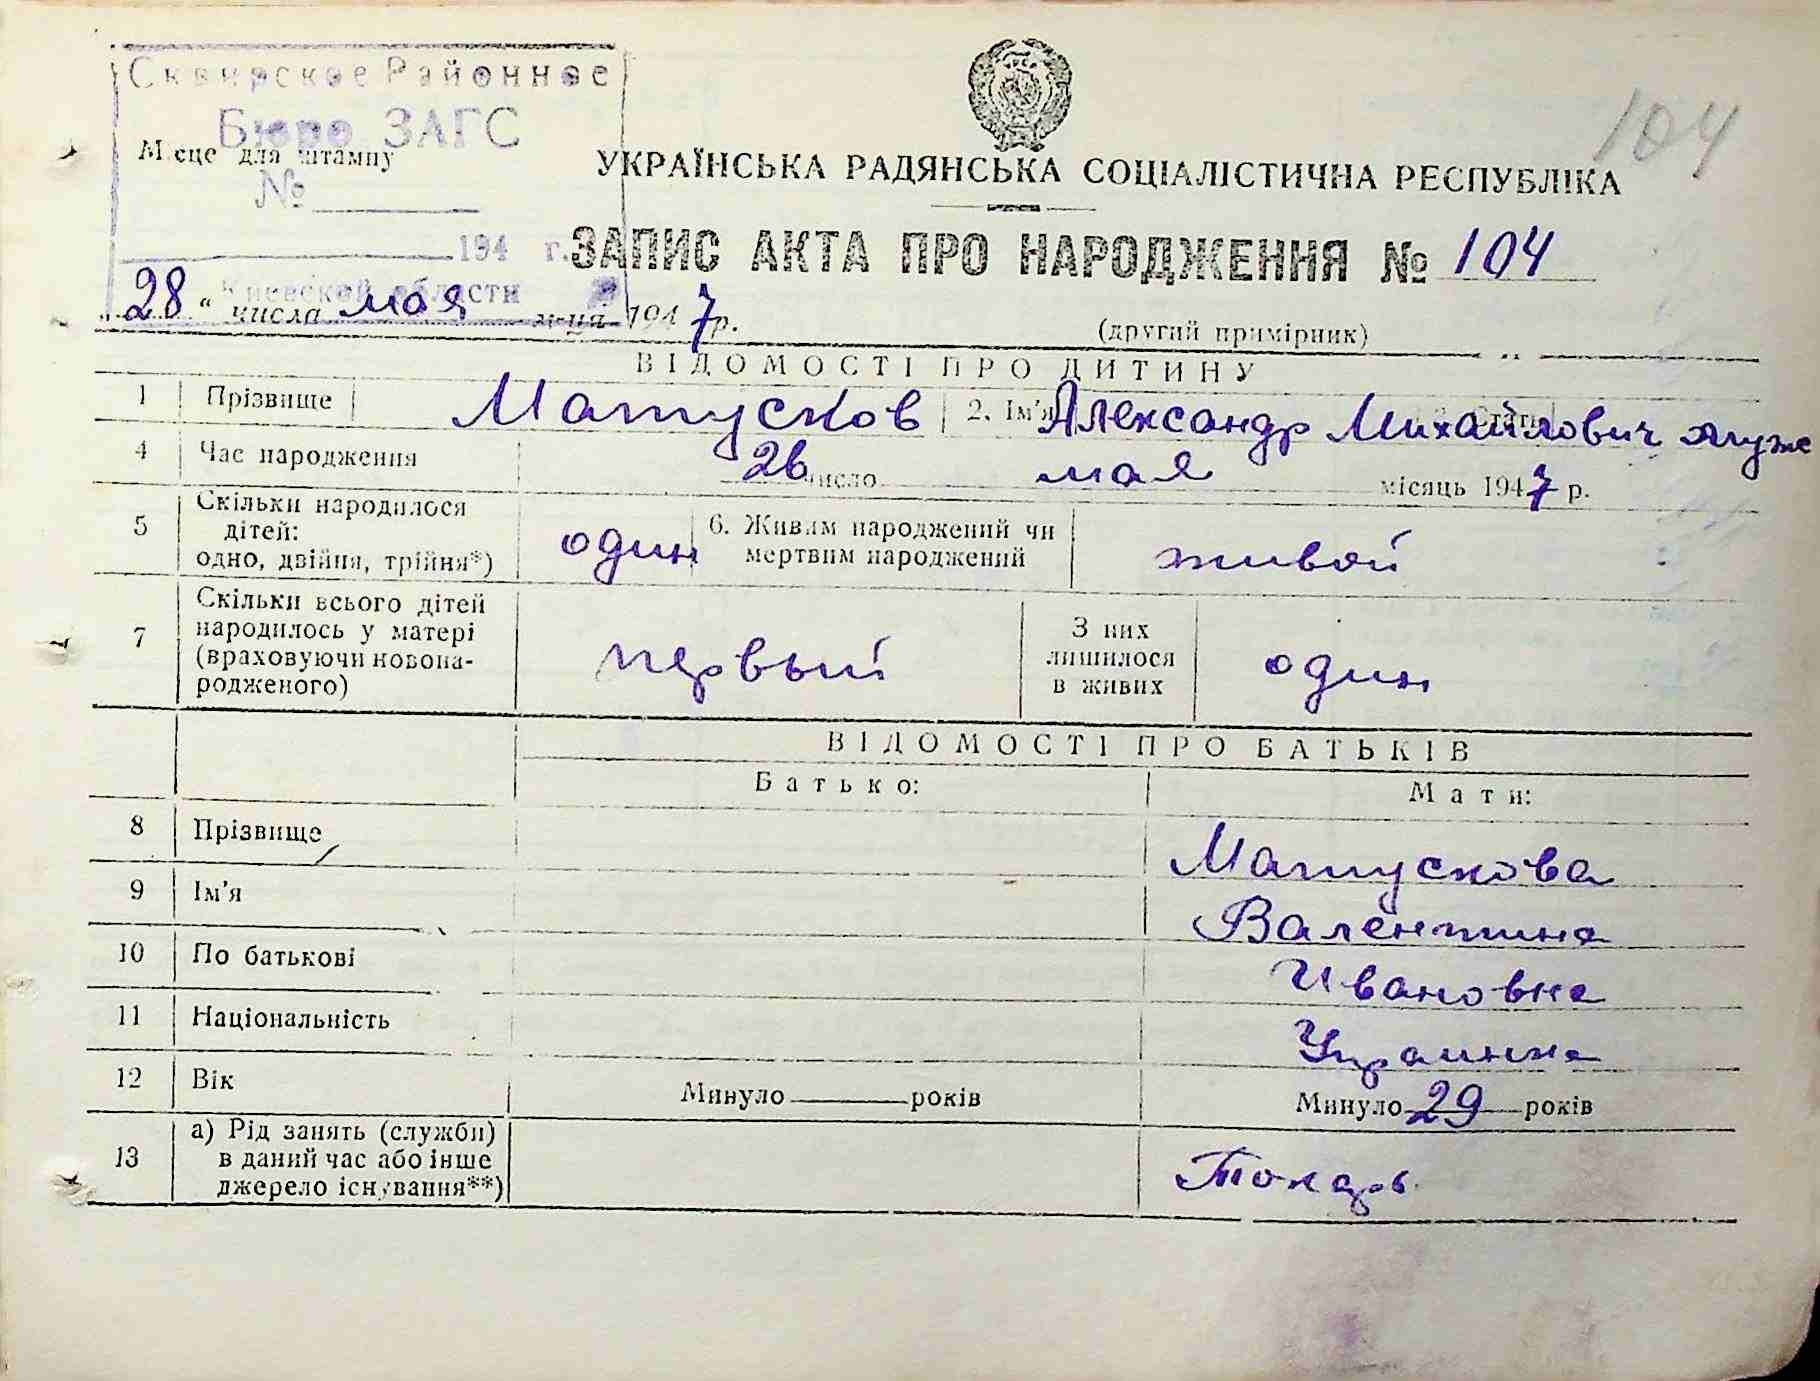 Сквирское Районное
Бюро ЗАГС
Місце для штампу
№
194 г.
Киевской области
104
УКРАЇНСЬКА РАДЯНСЬКА СОЦІАЛІСТИЧНА РЕСПУБЛІКА
ЗАПИС АКТА ПРО НАРОДЖЕННЯ № 104
28 " числа мая м-ця 1947 р.
(другий примірник)
ВІДОМОСТІ ПРО ДИТИНУ
1 Прізвище Матусков 2. Ім'я Александр Михайлович муж
4 Час народження 26 число мая місяць 1947 р.
5 Скільки народилося дітей: одно, двійня, трійня*) один 6. Живим народжений чи мертвим народжений живой
7 Скільки всього дітей народилось у матері (враховуючи новонародженого) первый З них лишилося в живих один
ВІДОМОСТІ ПРО БАТЬКІВ
Батько: Мати:
8 Прізвище Матускова
9 Ім'я Валентина
10 По батькові Ивановна
11 Національність Украинка
12 Вік Минуло років Минуло 29 років
13 а) Рід занять (служби) в даний час або інше джерело існування**) Токарь